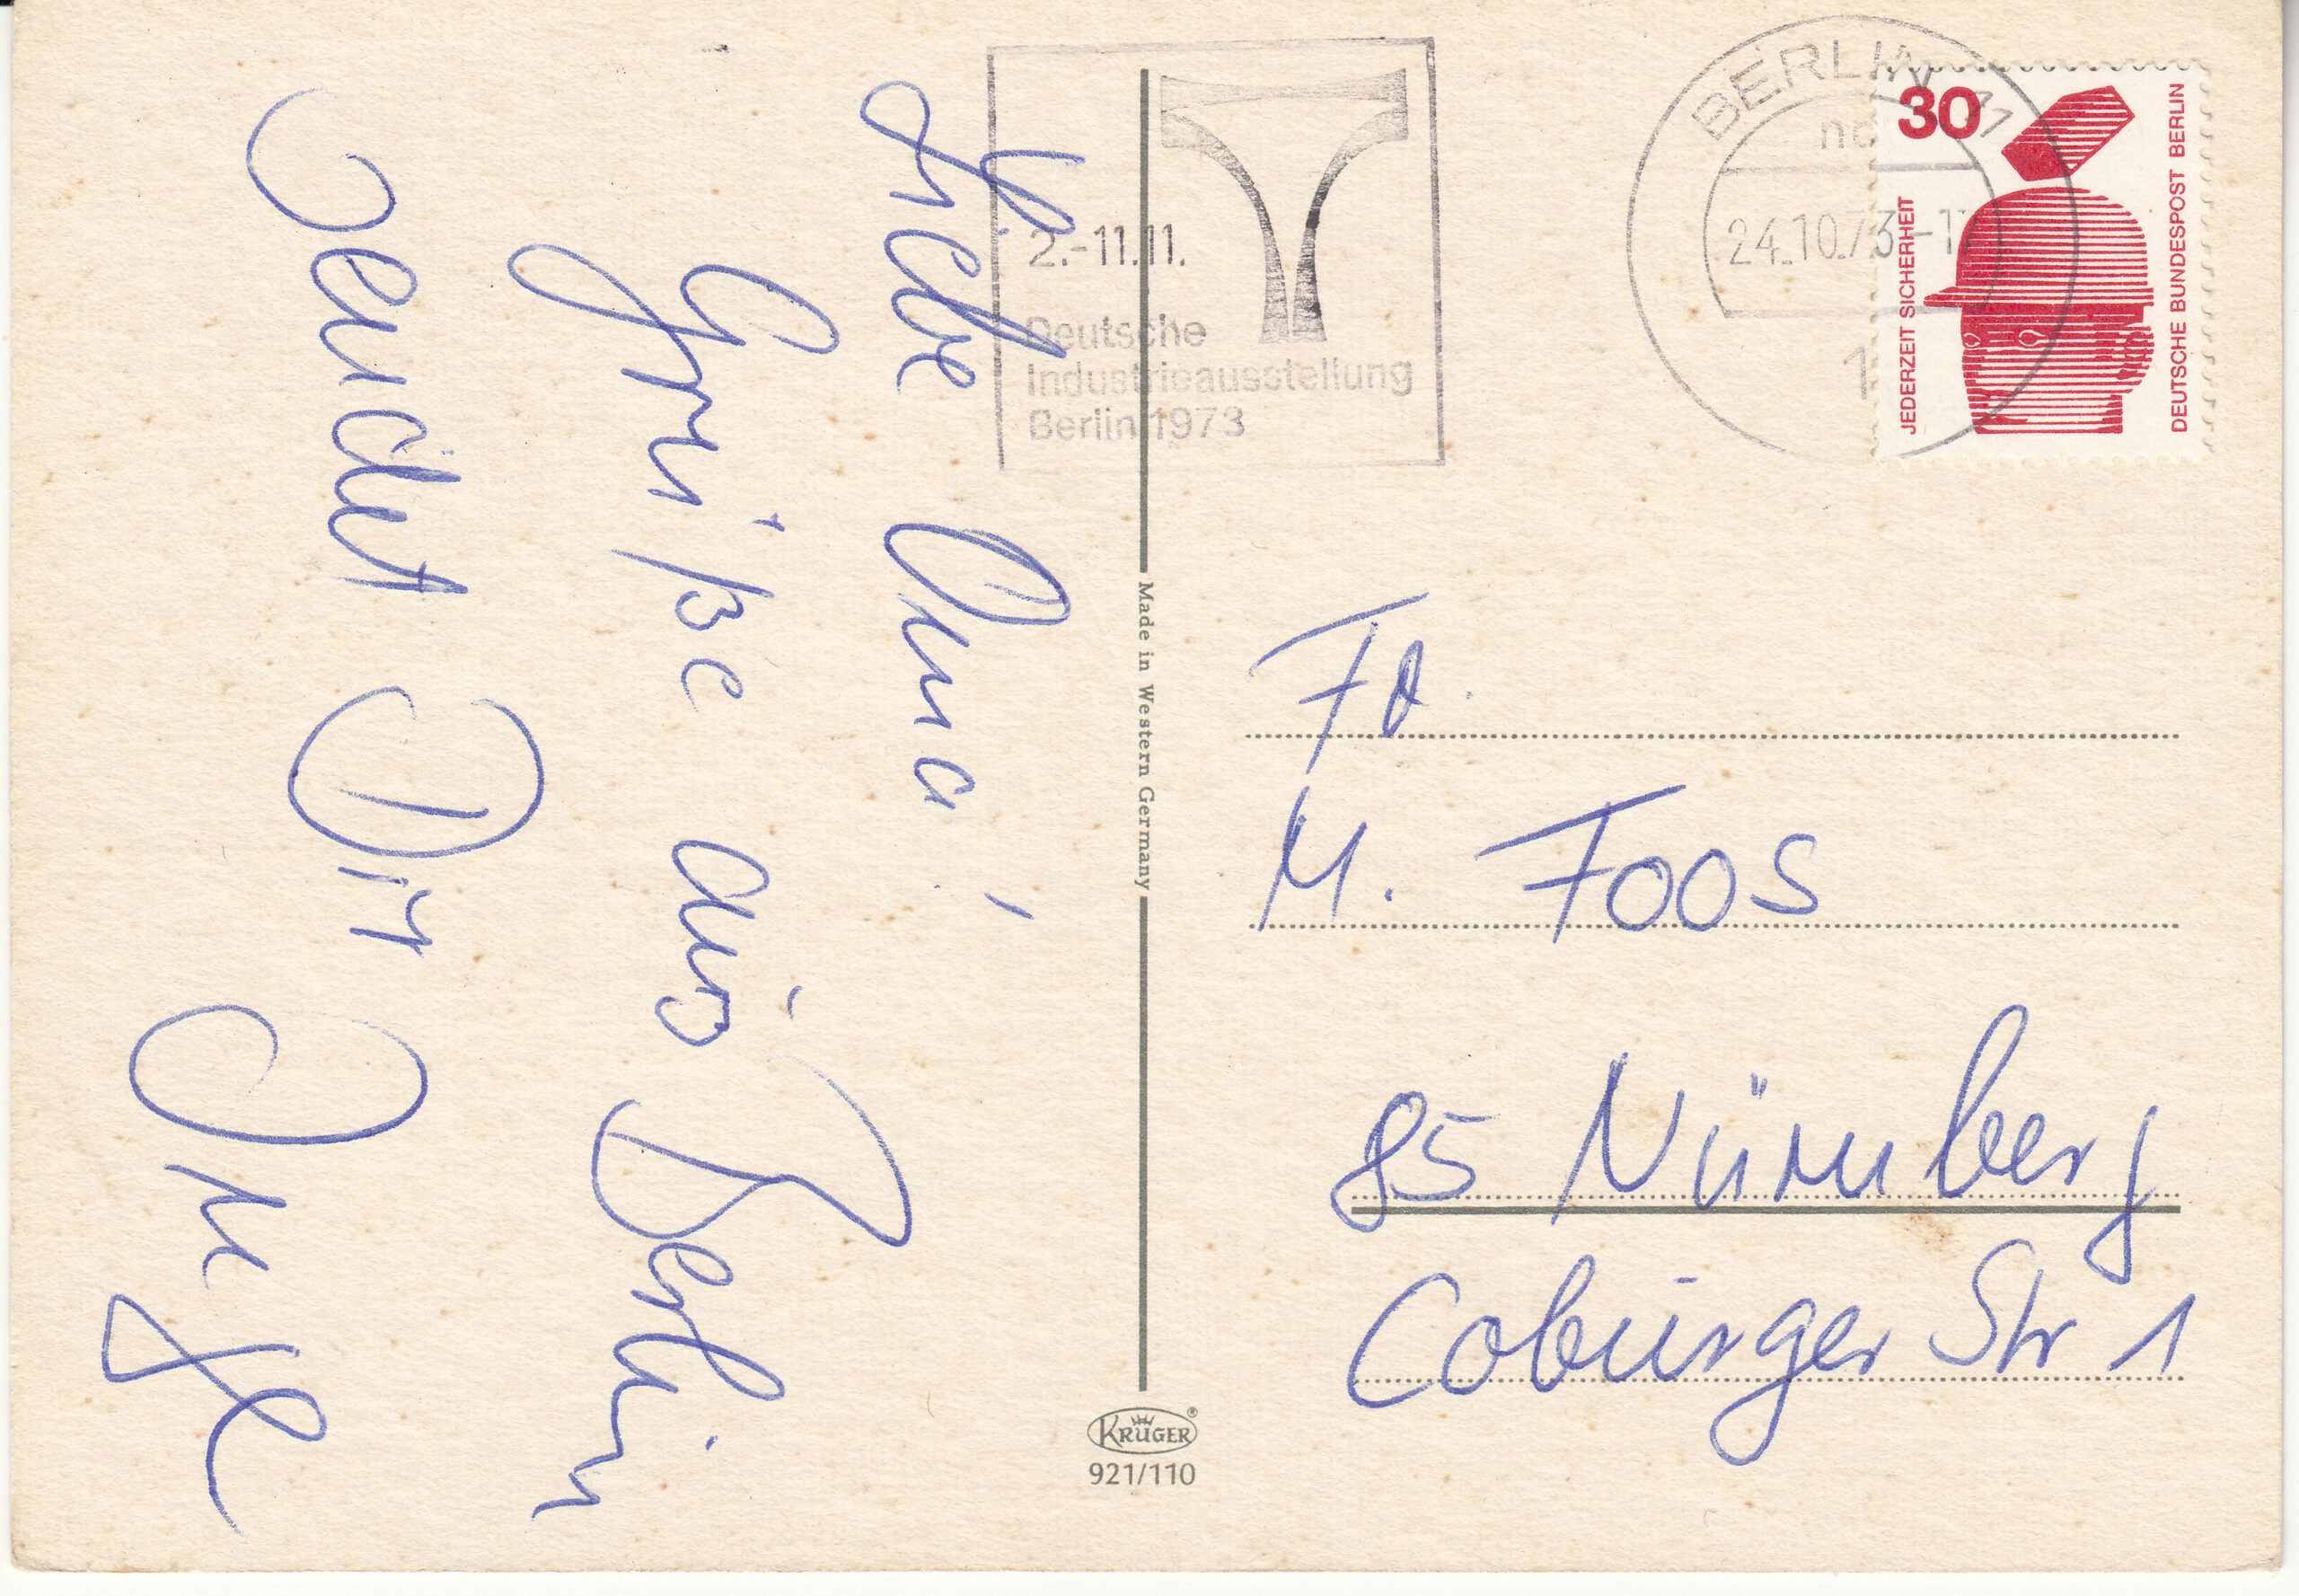 Liebe Oma!
Grüße aus Berlin
Sendet Dir Inge
2.-11.11.
Deutsche
Industrieausstellung
Berlin 1973
BERLIN 11
24.10.73-17
30
JEDERZEIT SICHERHEIT
DEUTSCHE BUNDESPOST BERLIN
Made in Western Germany
M. Foos
85 Nürnberg
Coburger Str 1
KRÜGER®
921/110